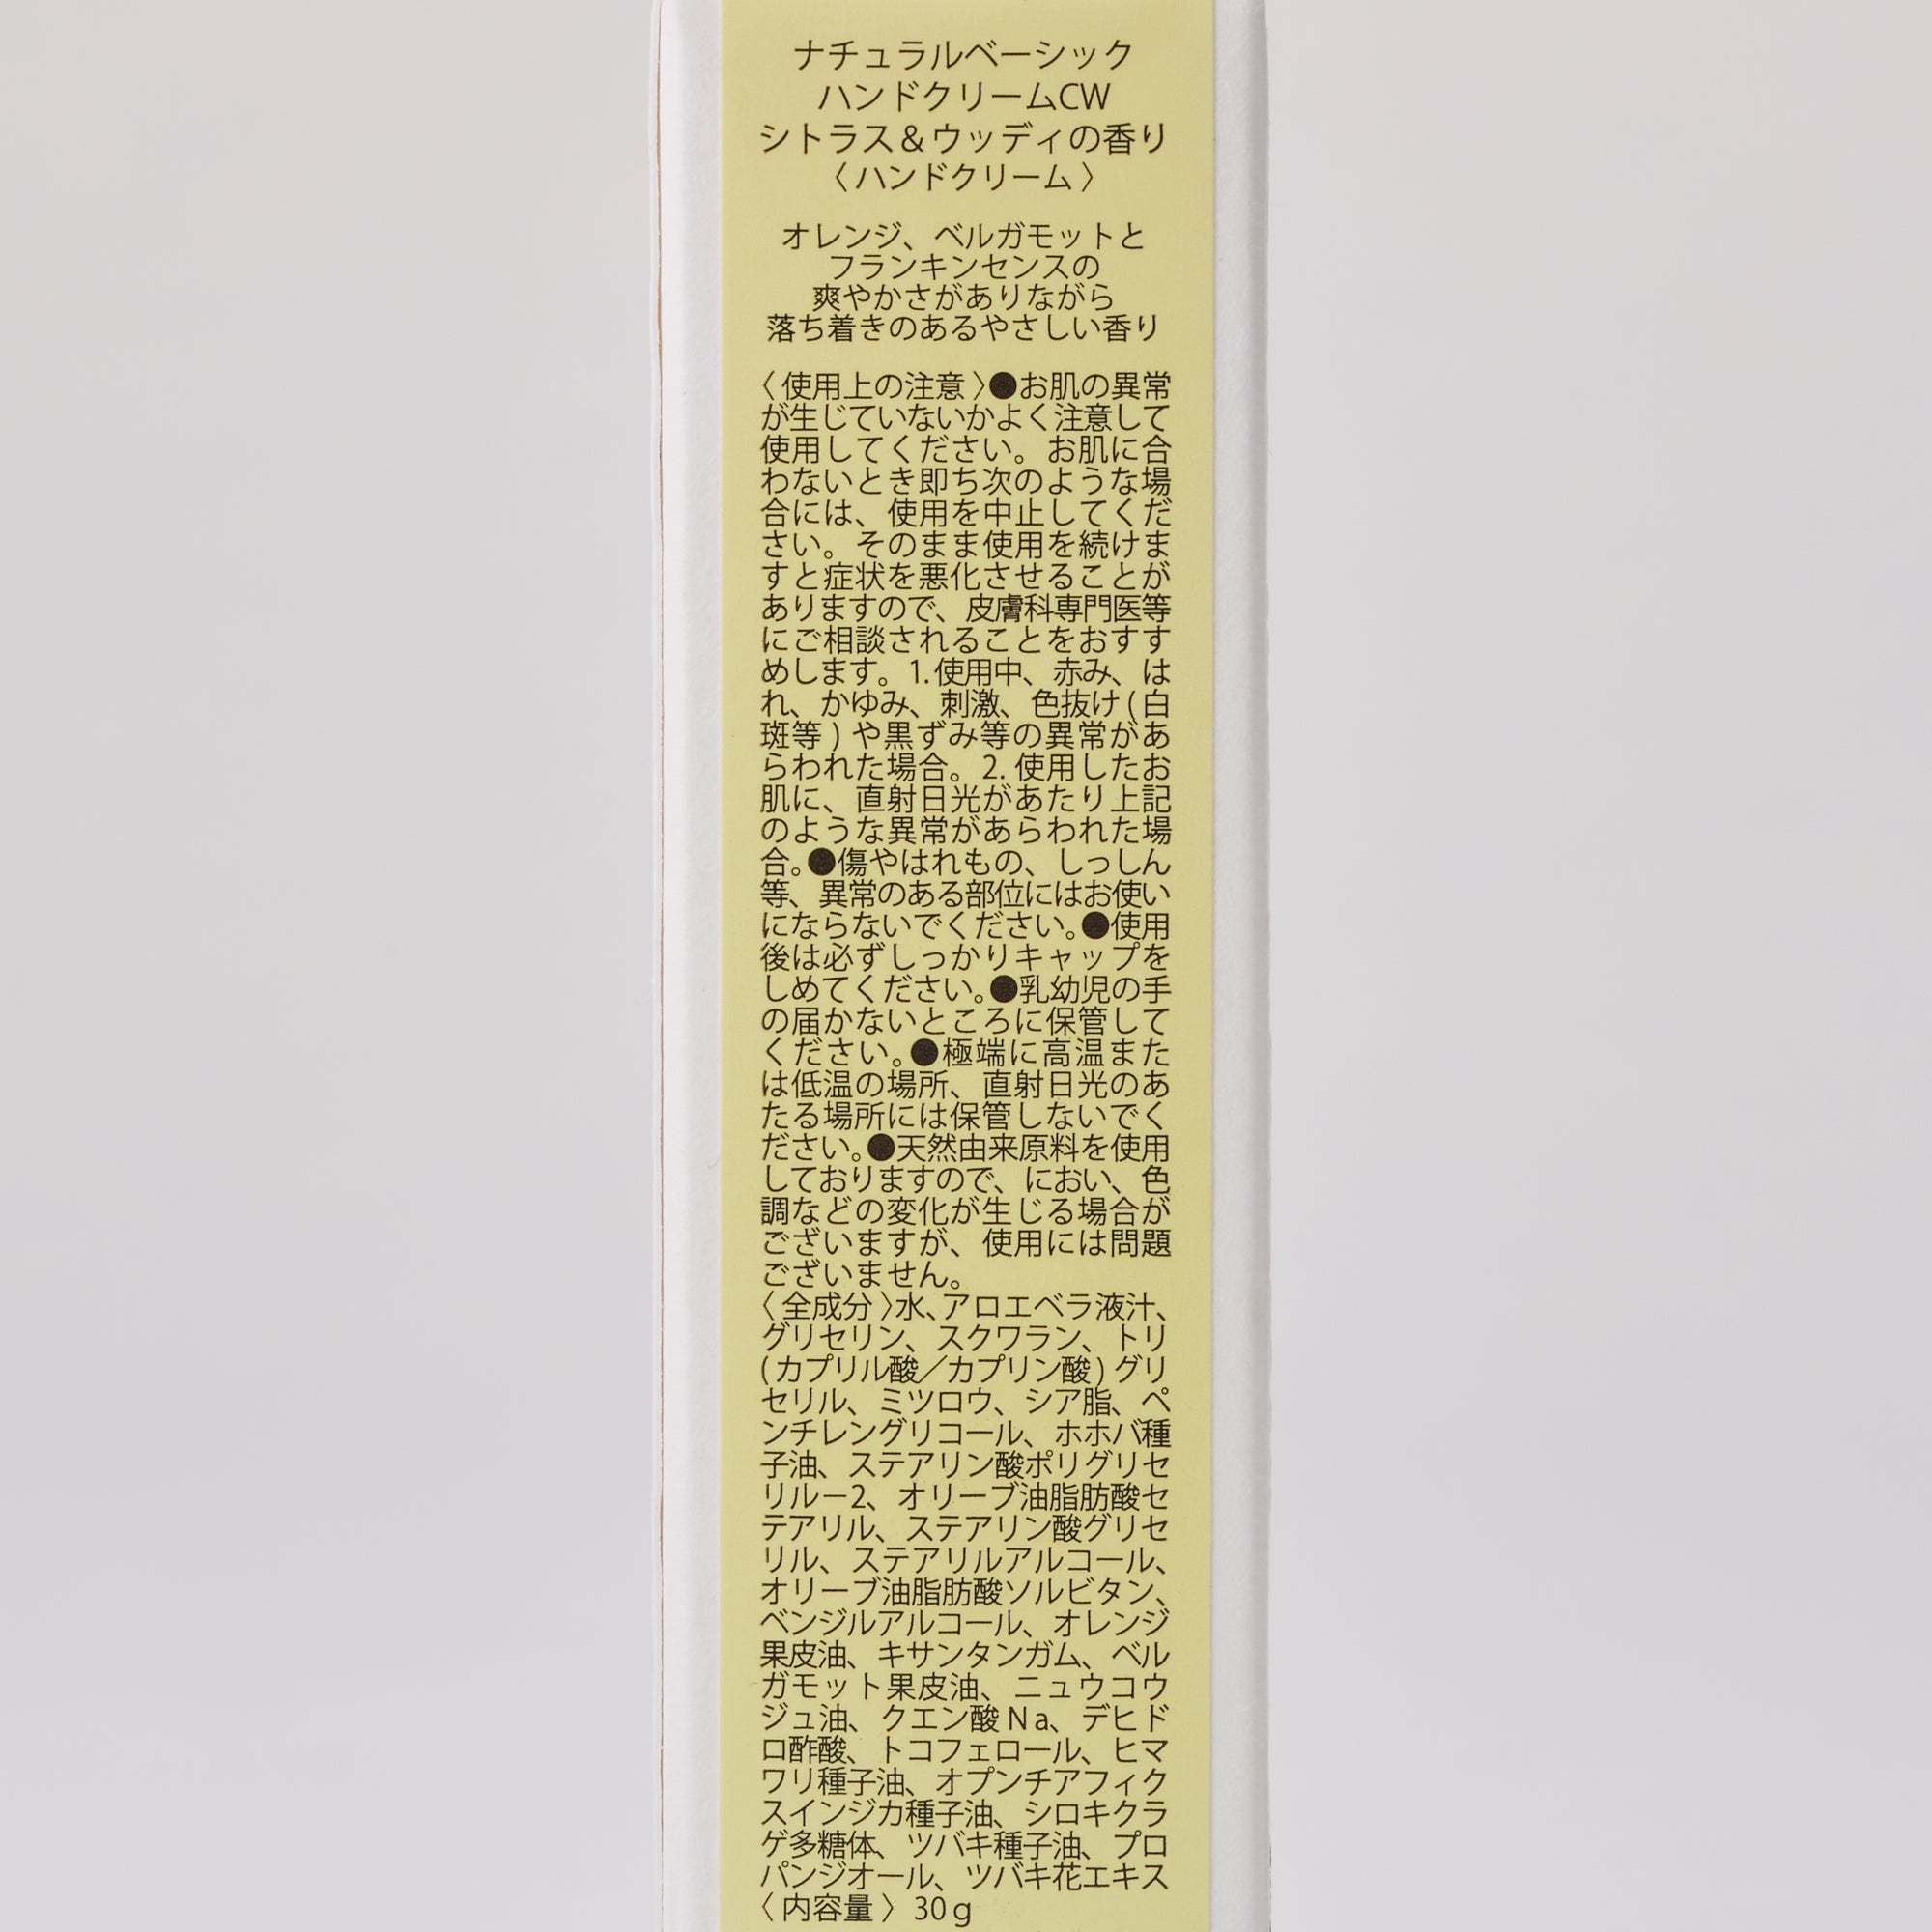 ナチュラルベーシック
ハンドクリームCW
シトラス＆ウッディの香り
〈ハンドクリーム〉
オレンジ、ベルガモットと
フランキンセンスの
爽やかさがありながら
落ち着きのあるやさしい香り
〈使用上の注意〉●お肌の異常
が生じていないかよく注意して
使用してください。お肌に合
わないとき即ち次のような場
合には、使用を中止してくだ
さい。そのまま使用を続けま
すと症状を悪化させることが
ありますので、皮膚科専門医等
にご相談されることをおすす
めします。1.使用中、赤み、は
れ、かゆみ、刺激、色抜け(白
斑等)や黒ずみ等の異常があ
らわれた場合。2.使用したお
肌に、直射日光があたり上記
のような異常があらわれた場
合。●傷やはれもの、しっしん
等、異常のある部位にはお使い
にならないでください。●使用
後は必ずしっかりキャップを
しめてください。●乳幼児の手
の届かないところに保管して
ください。●極端に高温また
は低温の場所、直射日光のあ
たる場所には保管しないでく
ださい。●天然由来原料を使用
しておりますので、におい、色
調などの変化が生じる場合が
ございますが、使用には問題
ございません。
〈全成分〉水、アロエベラ液汁、
グリセリン、スクワラン、トリ
(カプリル酸／カプリン酸)グリ
セリル、ミツロウ、シア脂、ペ
ンチレングリコール、ホホバ種
子油、ステアリン酸ポリグリセ
リル－2、オリーブ油脂肪酸セ
テアリル、ステアリン酸グリセ
リル、ステアリルアルコール、
オリーブ油脂肪酸ソルビタン、
ベンジルアルコール、オレンジ
果皮油、キサンタンガム、ベル
ガモット果皮油、ニュウコウ
ジュ油、クエン酸Na、デヒド
ロ酢酸、トコフェロール、ヒマ
ワリ種子油、オプンチアフィク
スインジカ種子油、シロキクラ
ゲ多糖体、ツバキ種子油、プロ
パンジオール、ツバキ花エキス
〈内容量〉30g